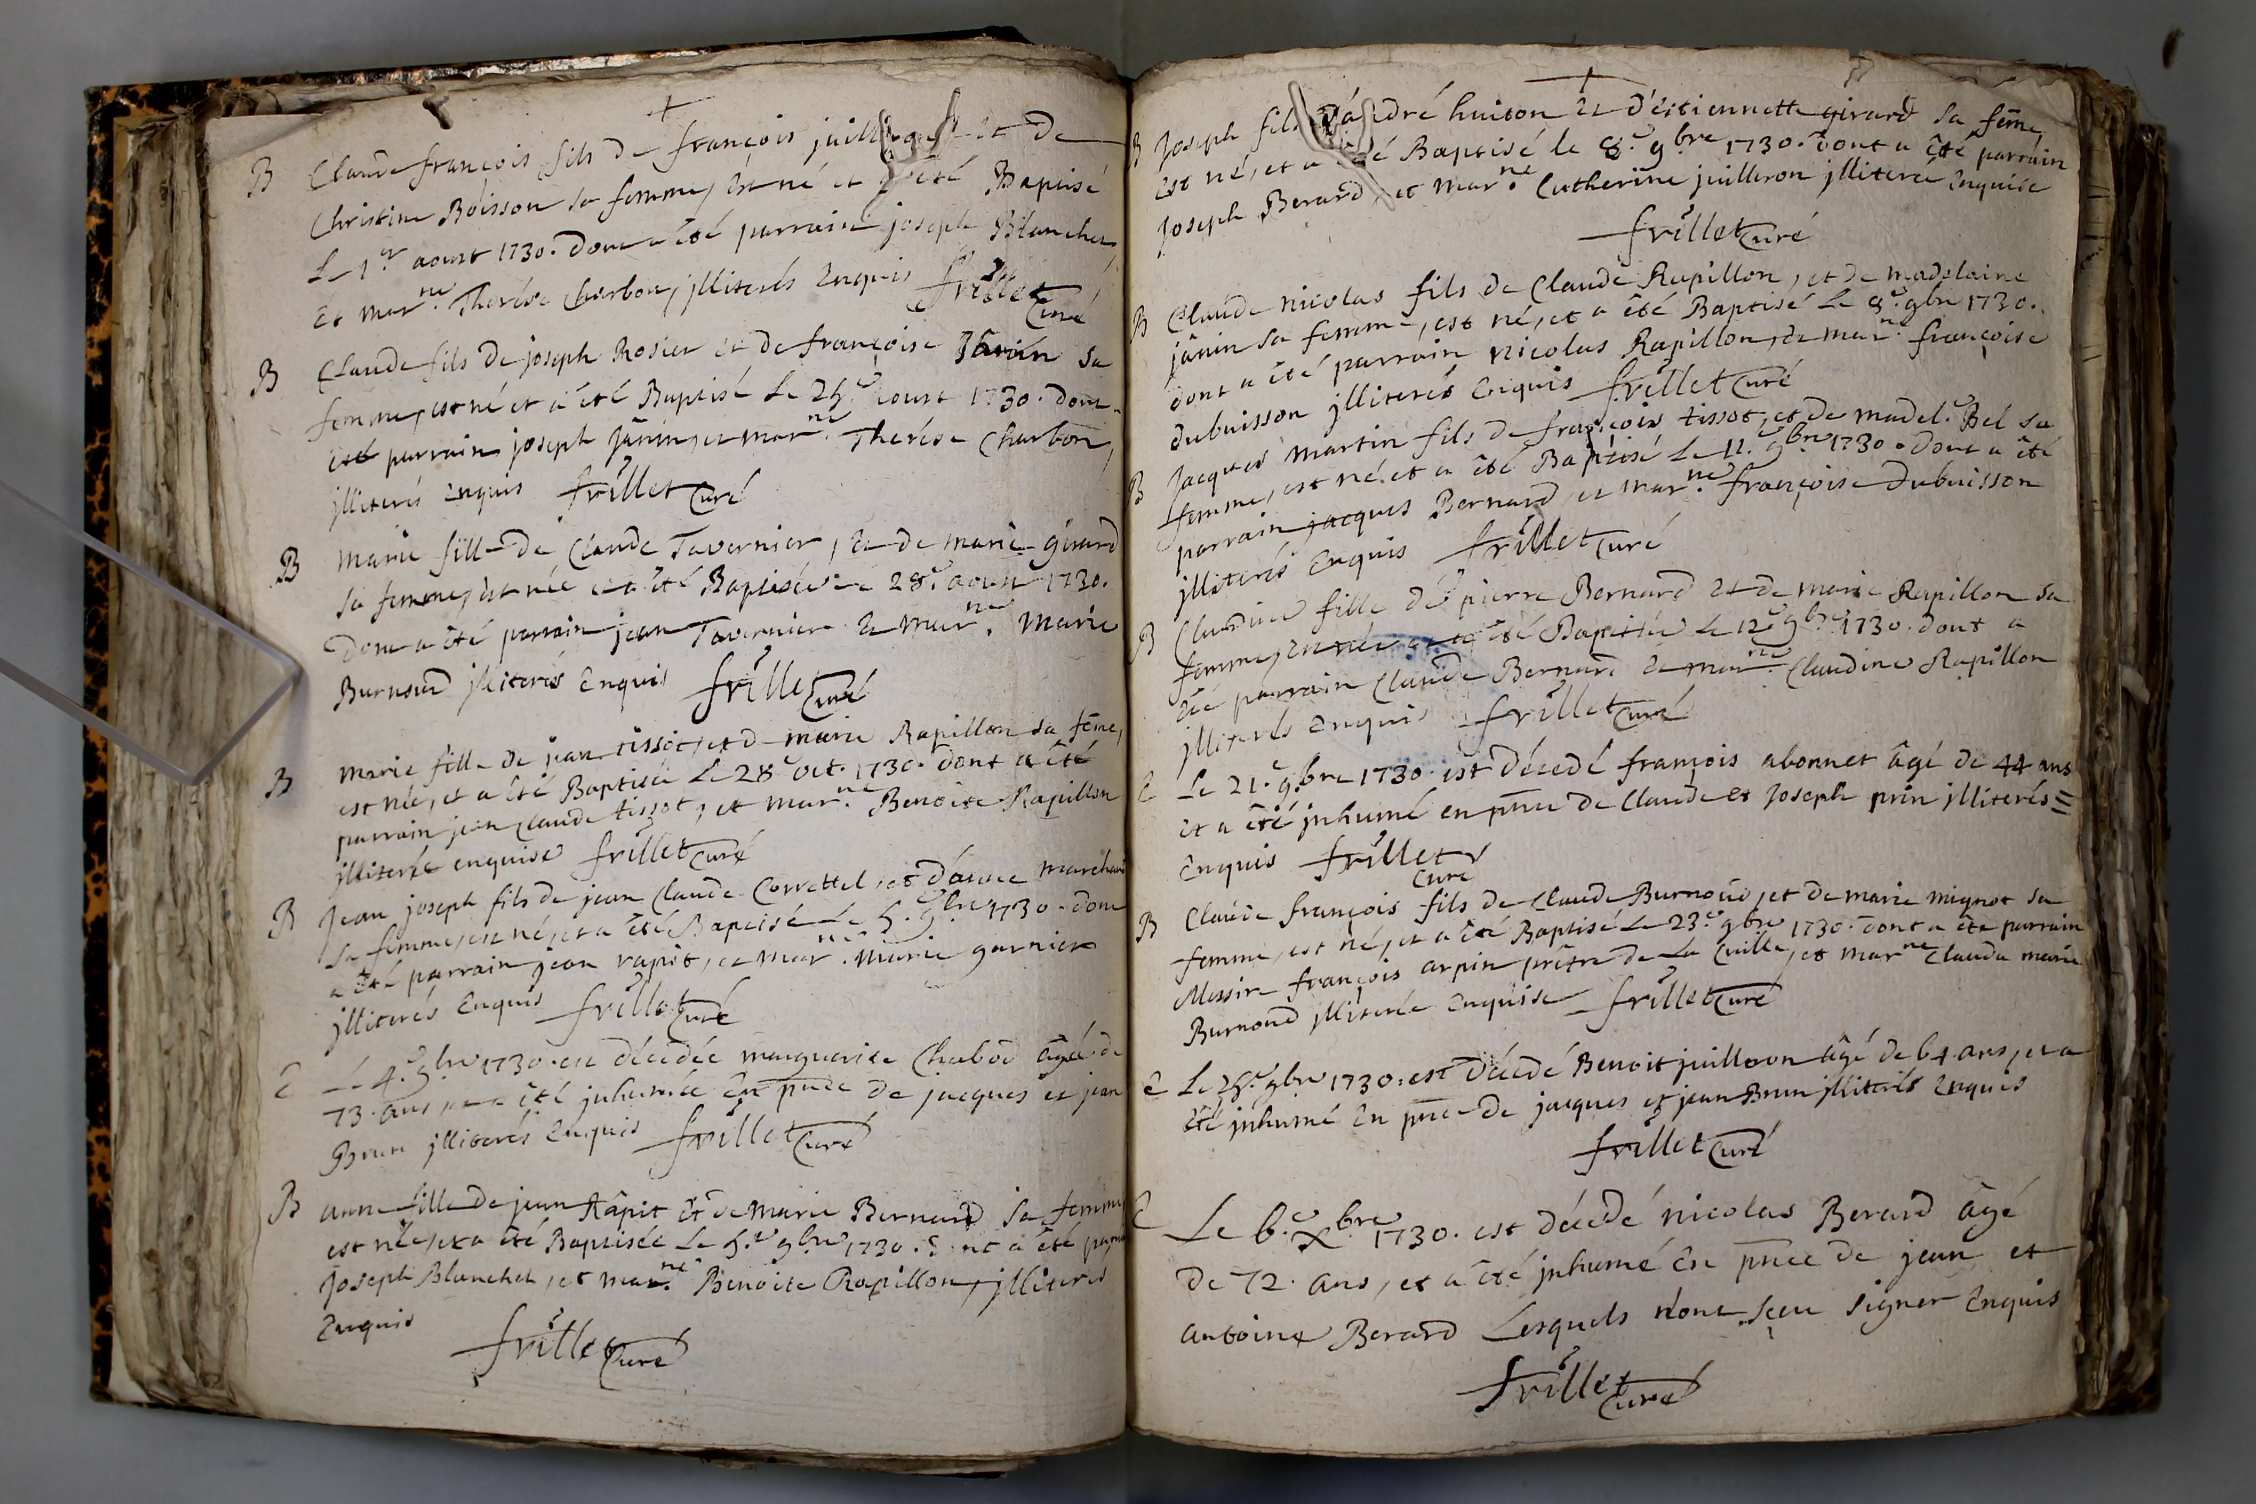 B Claude françois fils de françois juilleron et de
Christine Boisson sa femme, est né et a été Baptisé
Le 1.er aoust 1730. dont a été parrain joseph Blanchet,
Et mar.ne Therése Charbon, jlliterés Enquis frillet Curé
B Claude fils de joseph Rosier et de françoise Janin sa
femme, est né et a été Baptisé Le 25.e aoust 1730. dont a
été parrain joseph Janin, et mar.ne Therése Charbon,
jlliterés Enquis frillet Curé
B Marie fille de Claude Tavernier, et de marie girard
sa femme, est née et a été Baptisée Le 28.e aoust 1730.
Dont a été parrain jean Tavernier et mar.ne Marie
Burnoud jlliterés Enquis frillet Curé
B Marie fille de jean tissot, et de marie Rapillon sa fēme,
est née, et a été Baptisée Le 28.e oct. 1730. dont a été
parrain jean Claude tissot, et mar.ne Benoite Rapillon
jlliterée enquise frillet Curé
B Jean joseph fils de jean Claude Correttel, et d'anne marchand
sa femme, est né, et a été Baptisé Le 5.e 9bre 1730. dont
a été parrain jean rapit, et mar.ne Marie garnier
jlliterés Enquis frillet Curé
E Le 4.e 9bre 1730. est décedée marguerite Chabod âgée de
73. ans, et a été jnhumée En pnce de jacques et jean
Brun jlliterés Enquis frillet Curé
B anne fille de jean Râpit Et de Marie Bernard sa femme
est née, et a été Baptisée Le 5.e 9bre 1730. dont a été parrain
Joseph Blanchet, et mar.ne Benoite Rapillon, jlliterés
Enquis
frillet Curé
B Joseph fils d'andré huiton et d'estiennette girard sa fēme,
est né, et a été Baptisé le 8.e 9bre 1730. dont a été parrain
Joseph Berard, et mar.ne Catherine juilleron jlliterée Enquise
frillet Curé
B Claude nicolas fils de Claude Rapillon, et de madelaine
janin sa femme, est né, et a été Baptisé Le 8.e 9bre 1730.
dont a été parrain nicolas Rapillon, et mar.ne françoise
dubuisson jlliterés Enquis frillet Curé
B Jacques Martin fils de françois tissot, et de madel.e Bel sa
femme, est né, et a été Baptisé Le 11.e 9bre 1730. dont a été
parrain jacques Bernard, et mar.ne françoise Dubuisson
jlliterés Enquis frillet Curé
B Claudine fille de pierre Bernard et de marie Rapillon sa
femme, est née et a été Baptisée Le 12.e 9bre 1730. dont a
été parrain Claude Bernard et mar.ne Claudine Rapillon
jlliterés Enquis frillet Curé
E Le 21.e 9bre 1730. est décedé françois abonnet âgé de 44 ans
et a été jnhumé en pnce de Claude et Joseph prin jlliterés
Enquis frillet Curé
B Claude françois fils de Claude Burnoud, et de marie mignot sa
femme, est né, et a été Baptisé Le 23.e 9bre 1730. dont a été parrain
Messire françois arpin prêtre de La Cuille, et mar.ne Clauda marie
Burnoud jlliterée Enquise frillet Curé
E Le 28.e 9bre 1730. est décedé Benoit juilleron âgé de 64. ans, et a
été jnhumé En pnce de jacques et jean Brun jlliterés Enquis
frillet Curé
E Le 6.e Xbre 1730. est décedé nicolas Berard âgé
de 72. ans, et a été jnhumé En pnce de jean et
antoine Berard Lesquels n'ont sceu signer Enquis
frillet Curé